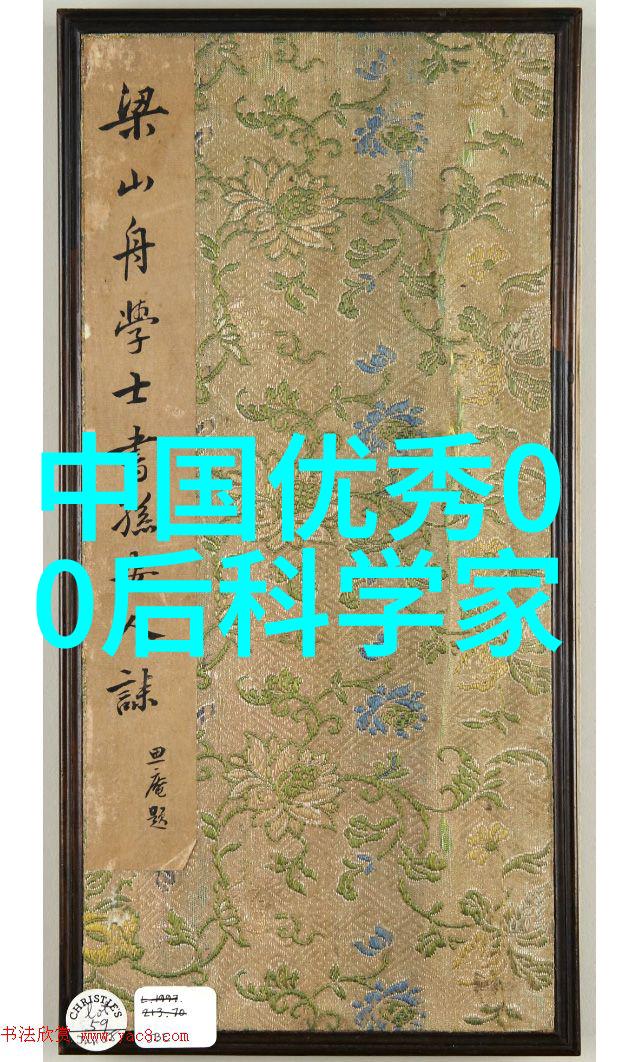 梁山舟學士書孫人誄
庵題
中国优秀0
0后科学家
CHRISTIE'S
lot
59
L.1997.
213.70
书法欣赏 www.yac8.com